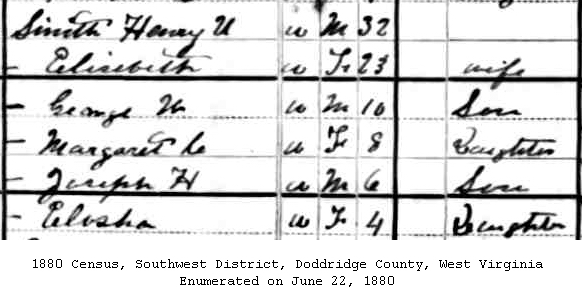 Smith Henry U W M 32
– Elisebeth W F 23 wife
– George W W M 10 Son
– Margaret C W F 8 Daughter
– Joseph H W M 6 Son
– Elosha W F 4 Daughter
1880 Census, Southwest District, Doddridge County, West Virginia
Enumerated on June 22, 1880